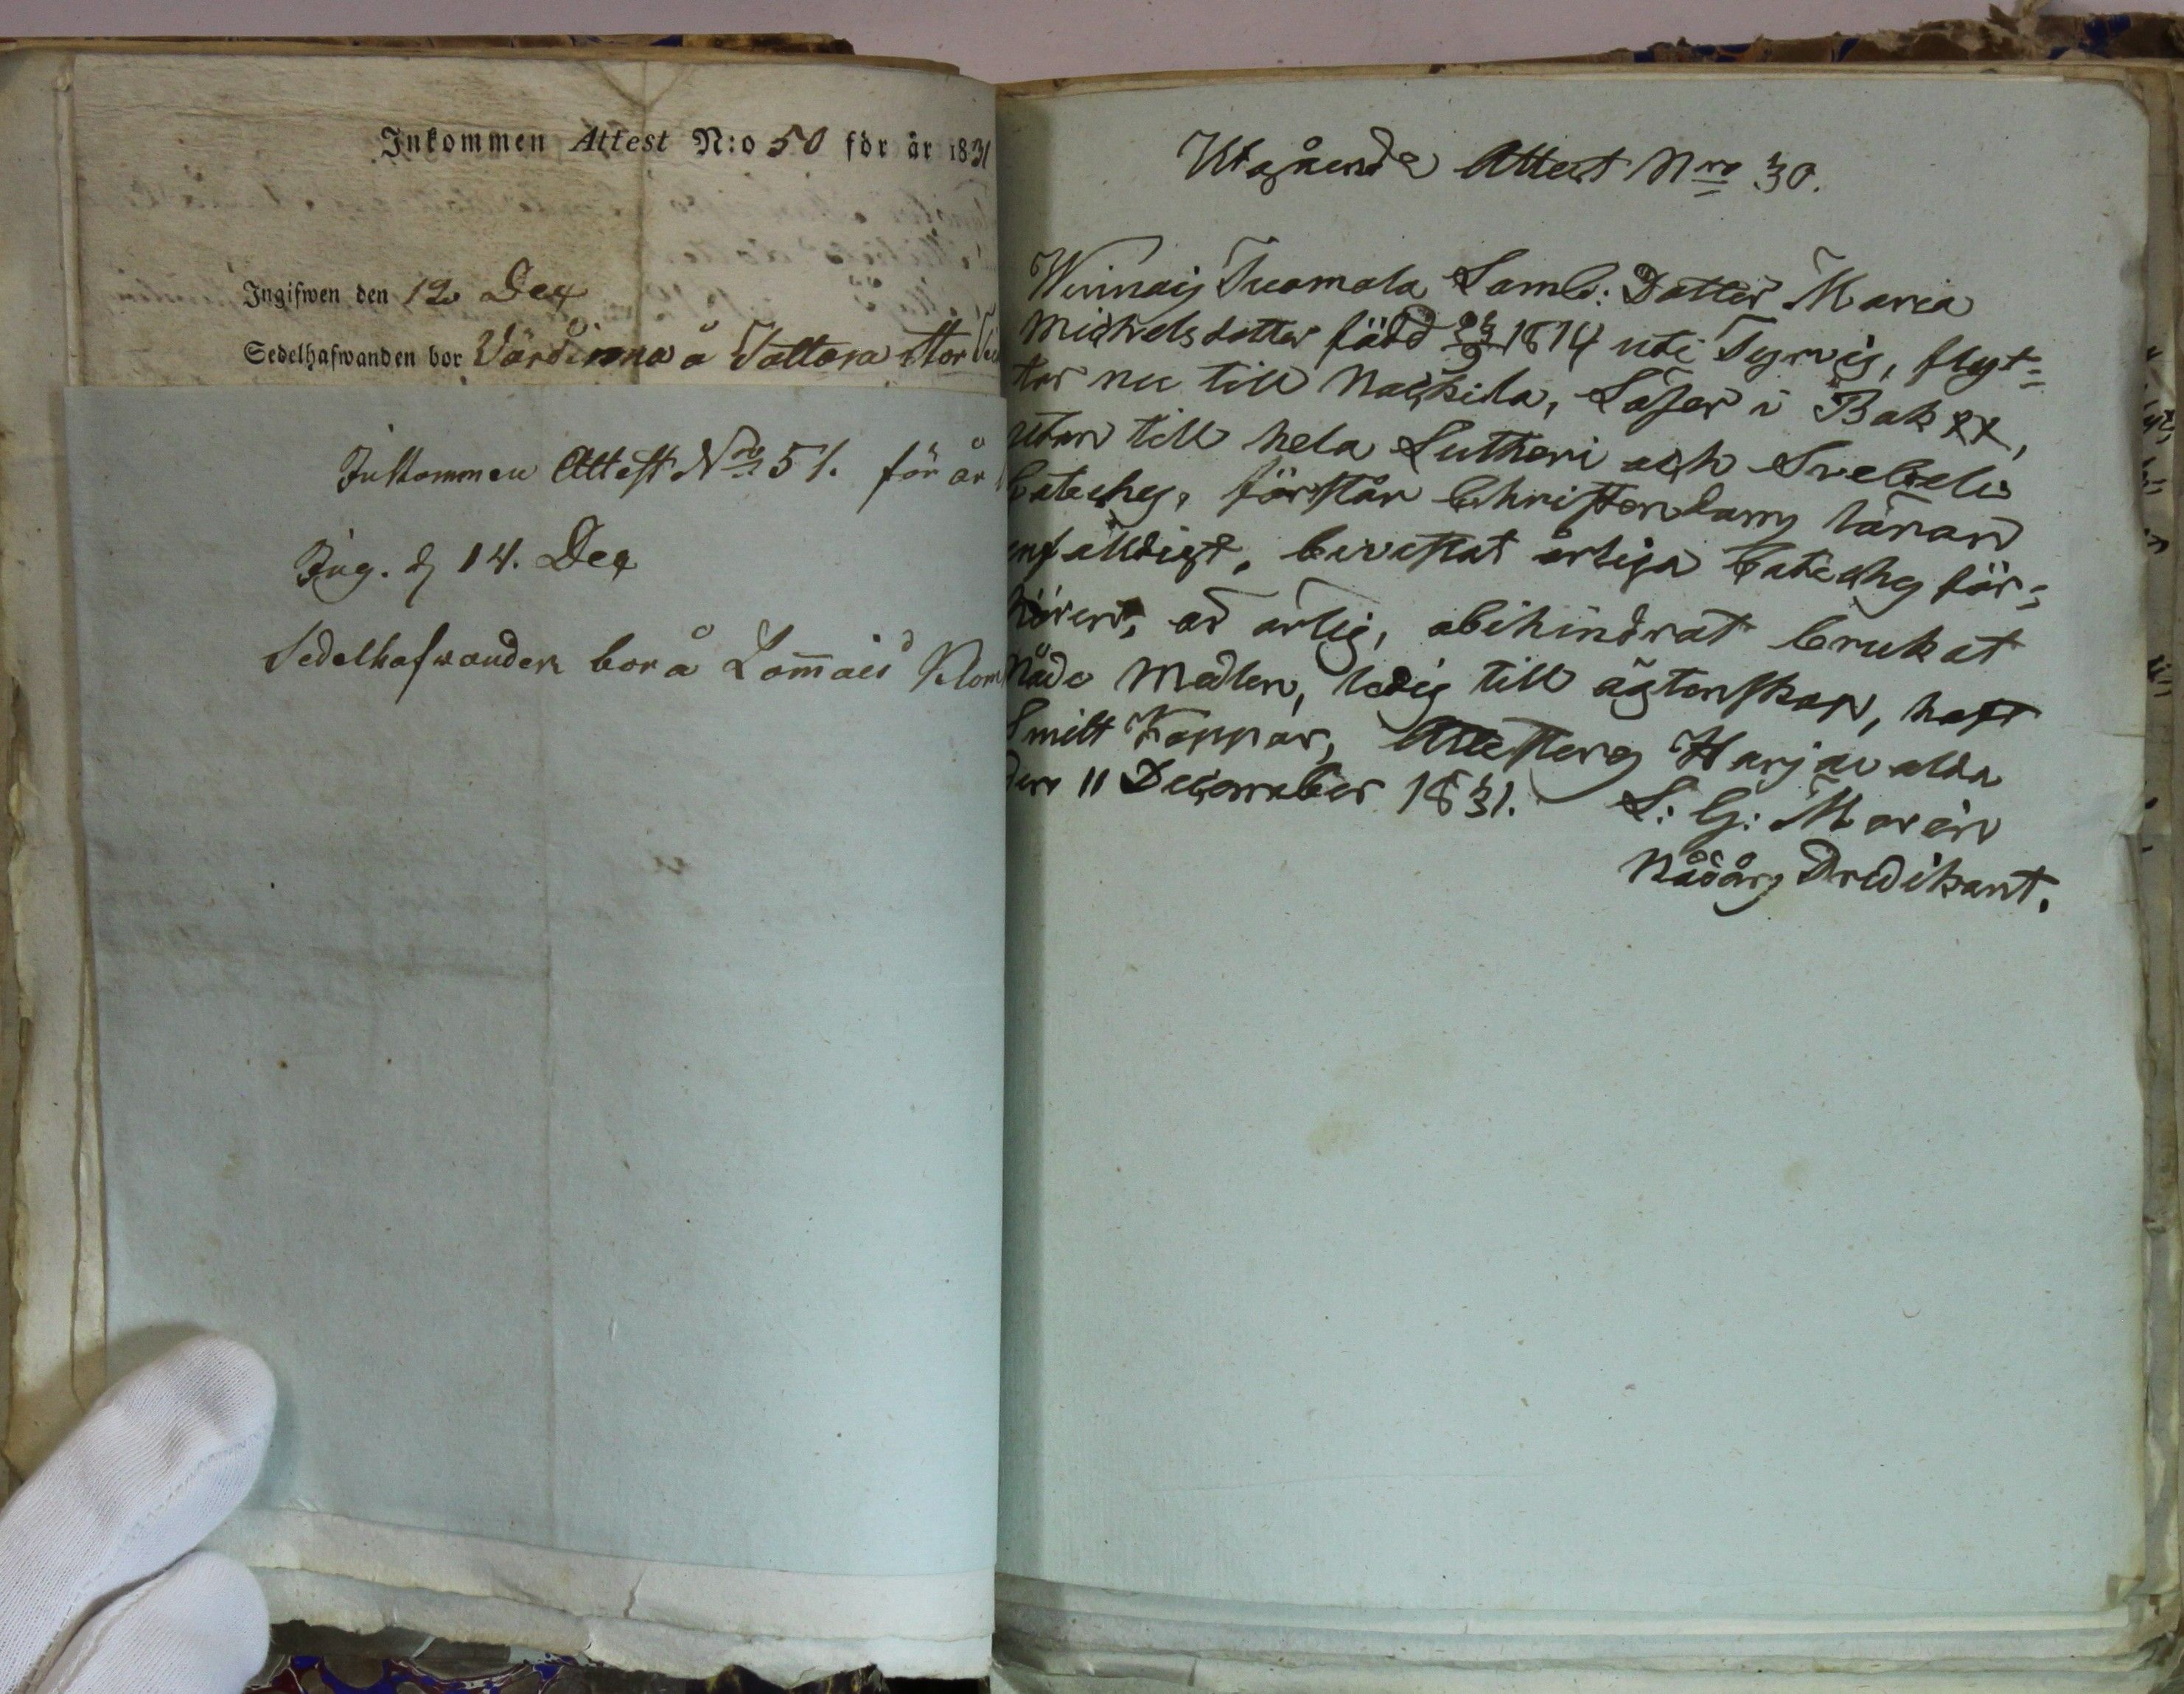 Inkommen Attest N:o 50 för år 1831
Ingifwen den 12 Dec
Sedelhafwanden bor Värdinna å Tattara Stor
Inkommen Attest Nro 51. för år
Ing. d 14. Dec
Sedelhafwanden bor å Lom̄ais
Utgående Attest Nro 30.
Winnais Tuomola Sambl: Dotter Maria
Michelsdotter född 23/9 1814 uti Tyrvis, flyt=
tar nu till Nackila, Läser i Bok xx,
utan till hela Lutheri och Svebelii
Cateches, förstår Christendoms läran
enfaldigt, bevistat årliga Cateches för=
hören, är ärlig, obehindrat brukat
Nåde Medlen, ledig till ägtenskap, haft
Smitt Koppor, Attesteras Harjavalda
den 11 December 1831. S: G: Moren
Nådårs Predikant.